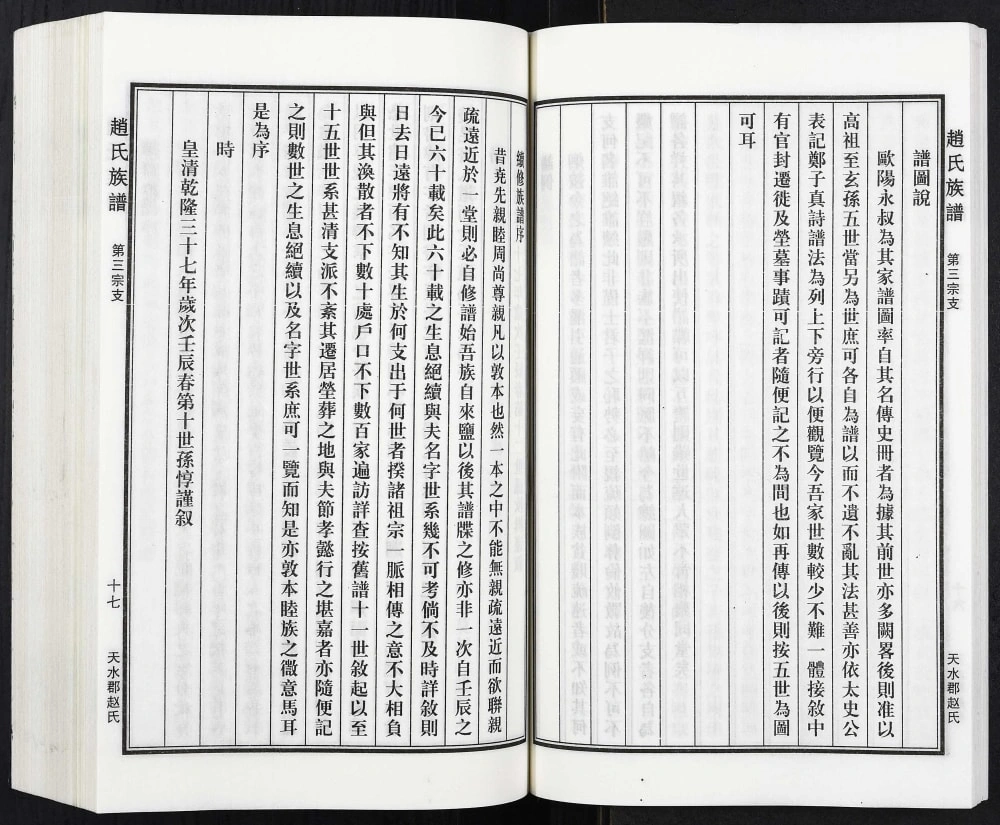 趙氏族譜
第三宗支
天水郡赵氏
譜圖說
歐陽永叔為其家譜圖率自其名傳史冊者為據其前世亦多闕畧後則准以
高祖至玄孫五世當另為世庶可各自為譜以而不遺不亂其法甚善亦依太史公
表記鄭子真詩譜法為列上下旁行以便觀覽今吾家世數較少不難一體接敘中
有官封遷徙及塋墓事蹟可記者隨便記之不為間也如再傳以後則按五世為圖
可耳
續修族譜序
昔堯先親睦周尚尊親凡以敦本也然一本之中不能無親疏遠近而欲聯親
疏遠近於一堂則必自修譜始吾族自來鹽以後其譜牒之修亦非一次自壬辰之
今已六十載矣此六十載之生息絕續與夫名字世系幾不可考倘不及時詳敘則
日去日遠將有不知其生於何支出于何世者揆諸祖宗一脈相傳之意不大相負
與但其渙散者不下數十處戶口不下數百家遍訪詳查按舊譜十一世敘起以至
十五世世系甚清支派不紊其遷居塋葬之地與夫節孝懿行之堪嘉者亦隨便記
之則數世之生息絕續以及名字世系庶可一覽而知是亦敦本睦族之微意焉耳
是為序
時
皇清乾隆三十七年歲次壬辰春第十世孫惇謹叙
趙氏族譜
第三宗支
十七
天水郡赵氏